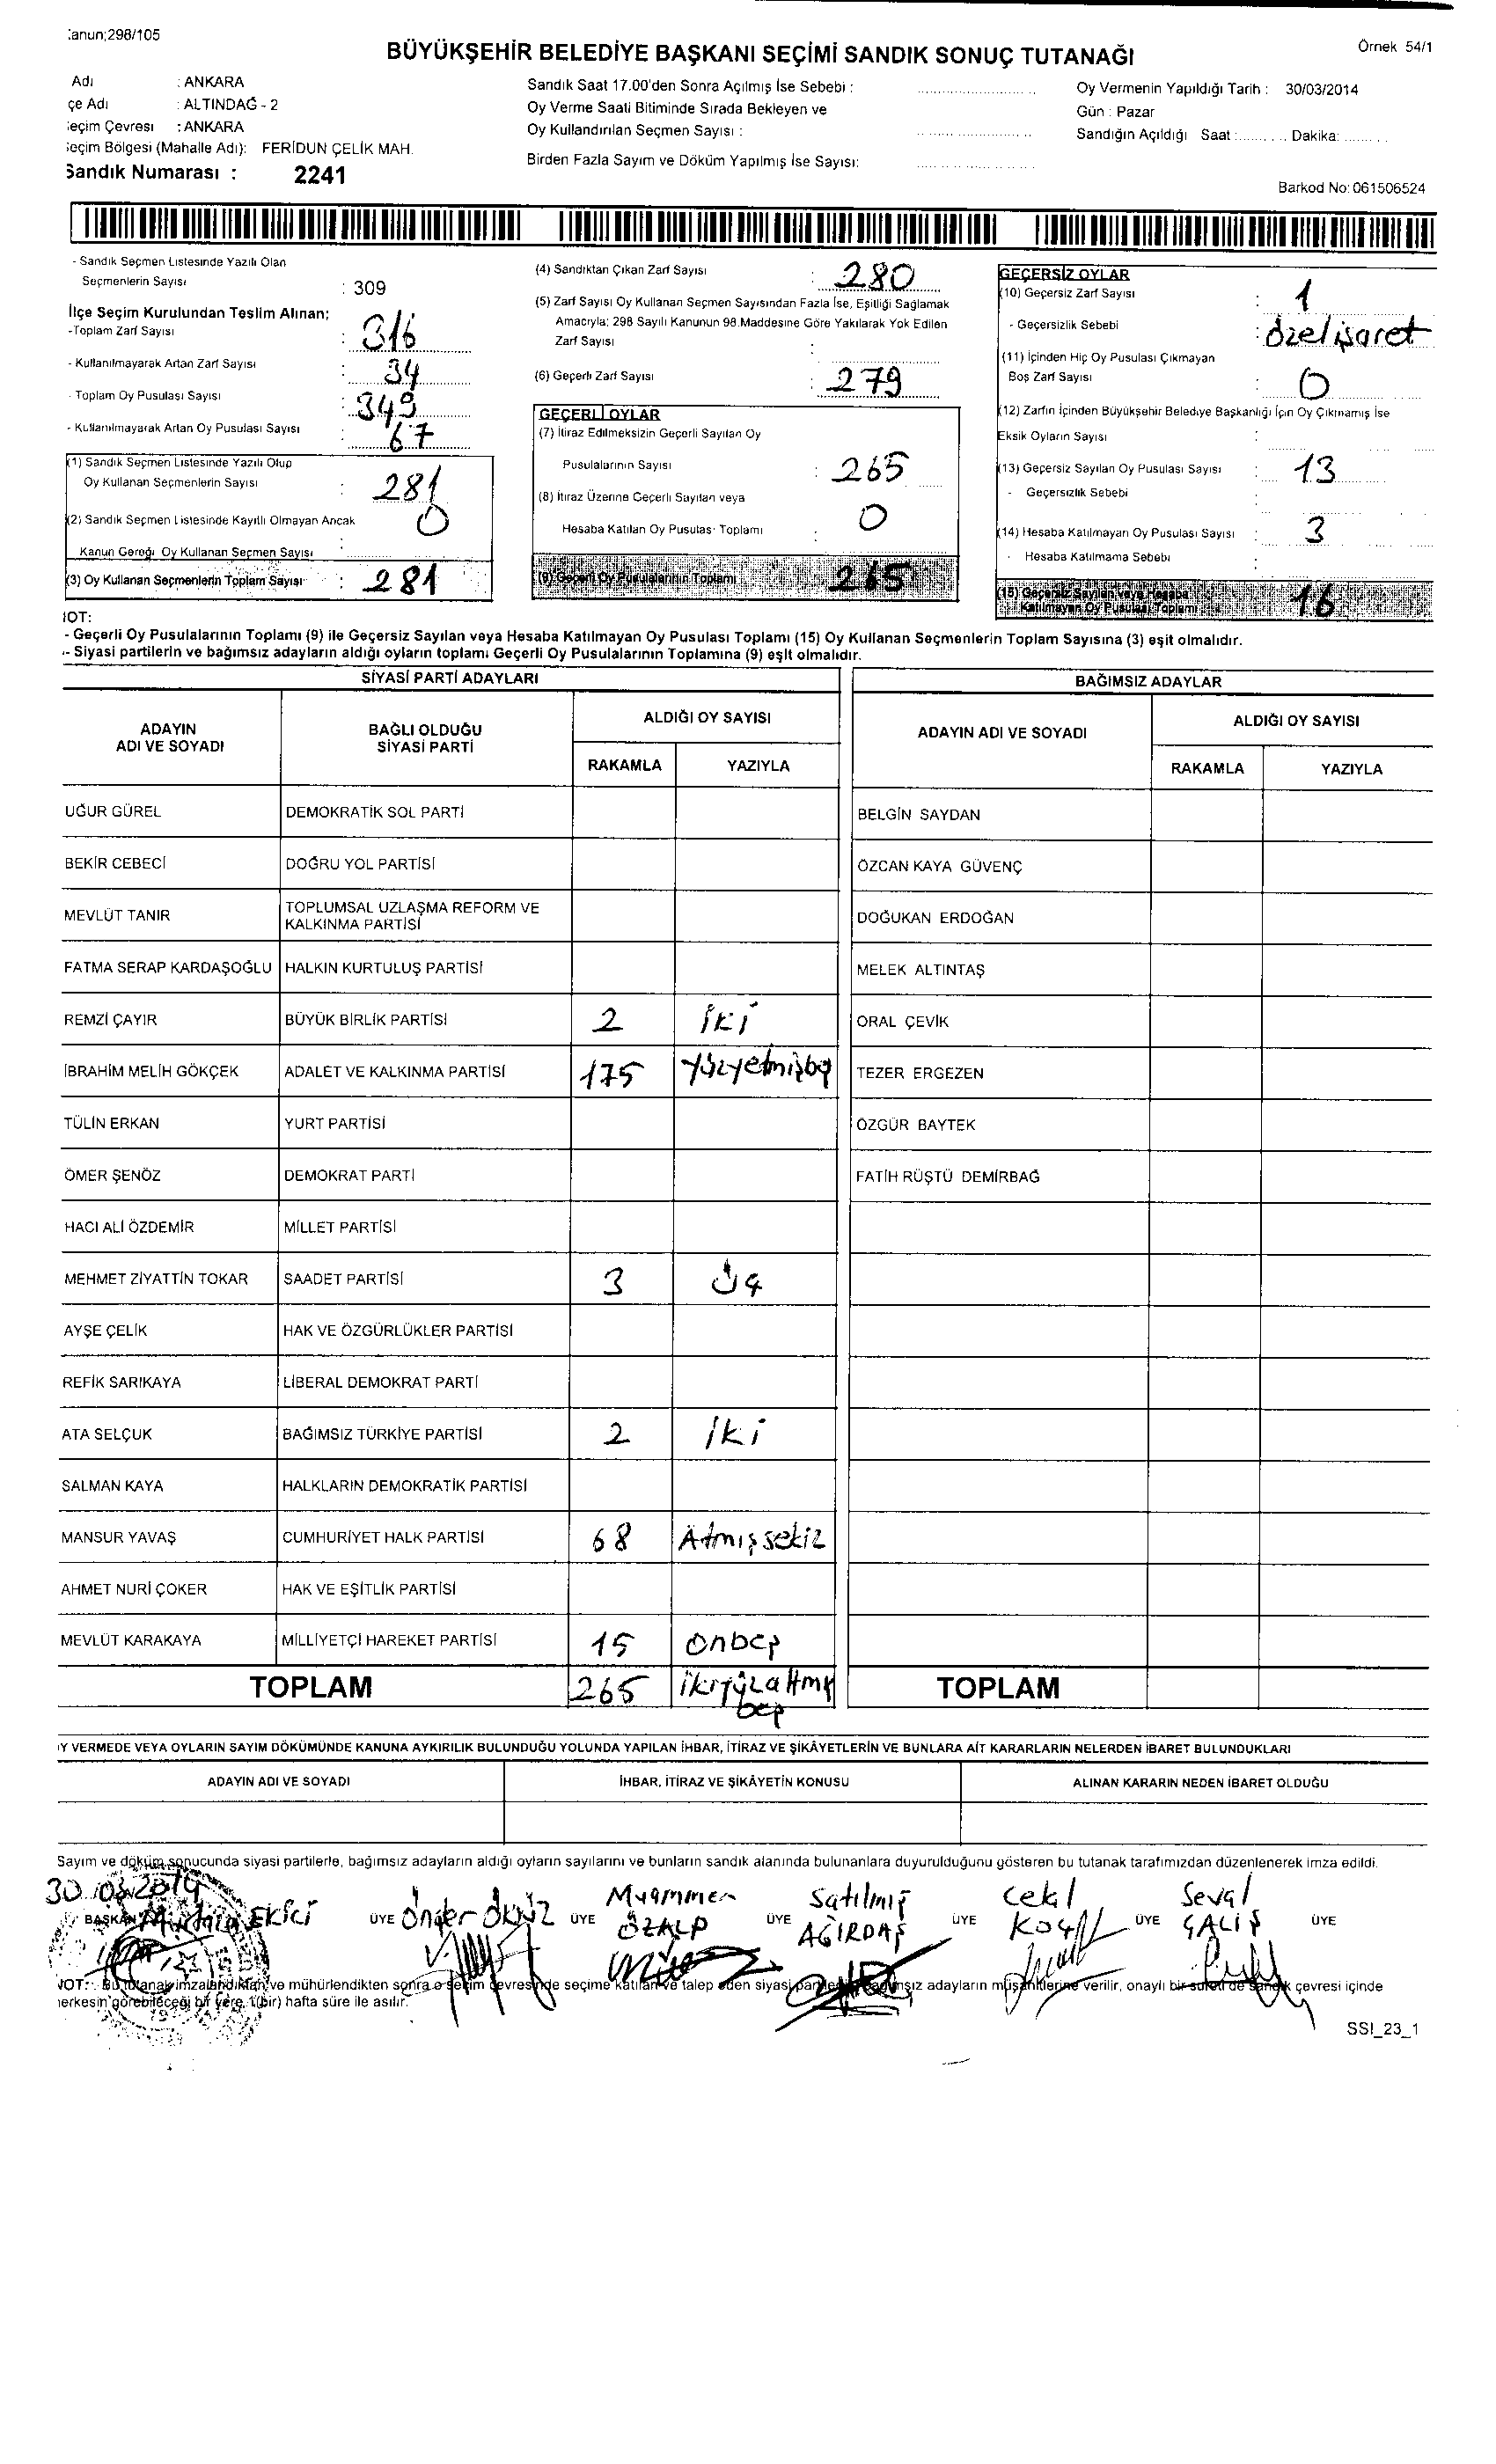 :anun;298/105
Örnek 54/1
BÜYÜKŞEHİR BELEDİYE BAŞKANI SEÇİMİ SANDIK SONUÇ TUTANAĞI
Adı : ANKARA
çe Adı : ALTINDAĞ - 2
eçim Çevresi : ANKARA
eçim Bölgesi (Mahalle Adı): FERİDUN ÇELİK MAH.
Sandık Numarası : 2241
Sandık Saat 17.00'den Sonra Açılmış İse Sebebi :
Oy Verme Saati Bitiminde Sırada Bekleyen ve
Oy Kullandırılan Seçmen Sayısı :
Birden Fazla Sayım ve Döküm Yapılmış İse Sayısı:
Oy Vermenin Yapıldığı Tarih : 30/03/2014
Gün : Pazar
Sandığın Açıldığı Saat :.......... Dakika: ..........
Barkod No: 061506524
- Sandık Seçmen Listesinde Yazılı Olan
Seçmenlerin Sayısı : 309
İlçe Seçim Kurulundan Teslim Alınan;
-Toplam Zarf Sayısı : 316
- Kullanılmayarak Artan Zarf Sayısı : 34
- Toplam Oy Pusulası Sayısı : 349
- Kullanılmayarak Artan Oy Pusulası Sayısı : 67
(1) Sandık Seçmen Listesinde Yazılı Olup
Oy Kullanan Seçmenlerin Sayısı : 281
(2) Sandık Seçmen Listesinde Kayıtlı Olmayan Ancak
Kanun Gereği Oy Kullanan Seçmen Sayısı : 0
(3) Oy Kullanan Seçmenlerin Toplam Sayısı : 281
(4) Sandıktan Çıkan Zarf Sayısı : 280
(5) Zarf Sayısı Oy Kullanan Seçmen Sayısından Fazla İse, Eşitliği Sağlamak
Amacıyla; 298 Sayılı Kanunun 98.Maddesine Göre Yakılarak Yok Edilen
Zarf Sayısı :
(6) Geçerli Zarf Sayısı : 279
GEÇERLİ OYLAR
(7) İtiraz Edilmeksizin Geçerli Sayılan Oy
Pusulalarının Sayısı : 265
(8) İtiraz Üzerine Geçerli Sayılan veya
Hesaba Katılan Oy Pusulası Toplamı : 0
(9) Geçerli Oy Pusulalarının Toplamı : 265
GEÇERSİZ OYLAR
(10) Geçersiz Zarf Sayısı : 1
- Geçersizlik Sebebi : özel işaret
(11) İçinden Hiç Oy Pusulası Çıkmayan
Boş Zarf Sayısı : 0
(12) Zarfın İçinden Büyükşehir Belediye Başkanlığı İçin Oy Çıkmamış İse
Eksik Oyların Sayısı :
(13) Geçersiz Sayılan Oy Pusulası Sayısı : 13
- Geçersizlik Sebebi :
(14) Hesaba Katılmayan Oy Pusulası Sayısı : 3
- Hesaba Katılmama Sebebi :
(15) Geçersiz Sayılan veya Hesaba
Katılmayan Oy Pusulası Toplamı : 16
IOT:
- Geçerli Oy Pusulalarının Toplamı (9) ile Geçersiz Sayılan veya Hesaba Katılmayan Oy Pusulası Toplamı (15) Oy Kullanan Seçmenlerin Toplam Sayısına (3) eşit olmalıdır.
- Siyasi partilerin ve bağımsız adayların aldığı oyların toplamı Geçerli Oy Pusulalarının Toplamına (9) eşit olmalıdır.
SİYASİ PARTİ ADAYLARI
BAĞIMSIZ ADAYLAR
ADAYIN ADI VE SOYADI
BAĞLI OLDUĞU SİYASİ PARTİ
ALDIĞI OY SAYISI
RAKAMLA YAZIYLA
ADAYIN ADI VE SOYADI
ALDIĞI OY SAYISI
RAKAMLA YAZIYLA
UĞUR GÜREL DEMOKRATİK SOL PARTİ BELGİN SAYDAN
BEKİR CEBECİ DOĞRU YOL PARTİSİ ÖZCAN KAYA GÜVENÇ
MEVLÜT TANIR TOPLUMSAL UZLAŞMA REFORM VE KALKINMA PARTİSİ DOĞUKAN ERDOĞAN
FATMA SERAP KARDAŞOĞLU HALKIN KURTULUŞ PARTİSİ MELEK ALTINTAŞ
REMZİ ÇAYIR BÜYÜK BİRLİK PARTİSİ 2 iki ORAL ÇEVİK
İBRAHİM MELİH GÖKÇEK ADALET VE KALKINMA PARTİSİ 175 Yüzyetmişbeş TEZER ERGEZEN
TÜLİN ERKAN YURT PARTİSİ ÖZGÜR BAYTEK
ÖMER ŞENÖZ DEMOKRAT PARTİ FATİH RÜŞTÜ DEMİRBAĞ
HACI ALİ ÖZDEMİR MİLLET PARTİSİ
MEHMET ZİYATTİN TOKAR SAADET PARTİSİ 3 Üç
AYŞE ÇELİK HAK VE ÖZGÜRLÜKLER PARTİSİ
REFİK SARIKAYA LİBERAL DEMOKRAT PARTİ
ATA SELÇUK BAĞIMSIZ TÜRKİYE PARTİSİ 2 iki
SALMAN KAYA HALKLARIN DEMOKRATİK PARTİSİ
MANSUR YAVAŞ CUMHURİYET HALK PARTİSİ 68 Atmışsekiz
AHMET NURİ ÇOKER HAK VE EŞİTLİK PARTİSİ
MEVLÜT KARAKAYA MİLLİYETÇİ HAREKET PARTİSİ 15 onbeş
TOPLAM 265 ikiyüzatmış beş TOPLAM
Y VERMEDE VEYA OYLARIN SAYIM DÖKÜMÜNDE KANUNA AYKIRILIK BULUNDUĞU YOLUNDA YAPILAN İHBAR, İTİRAZ VE ŞİKÂYETLERİN VE BUNLARA AİT KARARLARIN NELERDEN İBARET BULUNDUKLARI
ADAYIN ADI VE SOYADI İHBAR, İTİRAZ VE ŞİKÂYETİN KONUSU ALINAN KARARIN NEDEN İBARET OLDUĞU
Sayım ve döküm sonucunda siyasi partilerle, bağımsız adayların aldığı oyların sayılarını ve bunların sandık alanında bulunanlara duyurulduğunu gösteren bu tutanak tarafımızdan düzenlenerek imza edildi.
30.03.2014
BAŞKAN EKİCİ ÜYE Önder ÖKSÜZ ÜYE Muammer ÖZALP ÜYE Satılmış AĞIRDAŞ ÜYE Celal KOÇAK ÜYE Seval ÇALIŞ ÜYE
NOT: Bu tutanak imzalandıktan ve mühürlendikten sonra o seçim çevresinde seçime katılan ve talep eden siyasi partilerin bağımsız adayların müşahitlerine verilir, onaylı bir sureti de sandık çevresi içinde
herkesin görebileceği bir yere, 1(bir) hafta süre ile asılır.
SSI_23_1